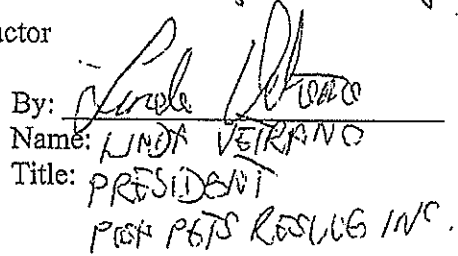 uctor
By: Linda Vetrano
Name: LINDA VETRANO
Title: PRESIDENT
PETS RESCUE INC.